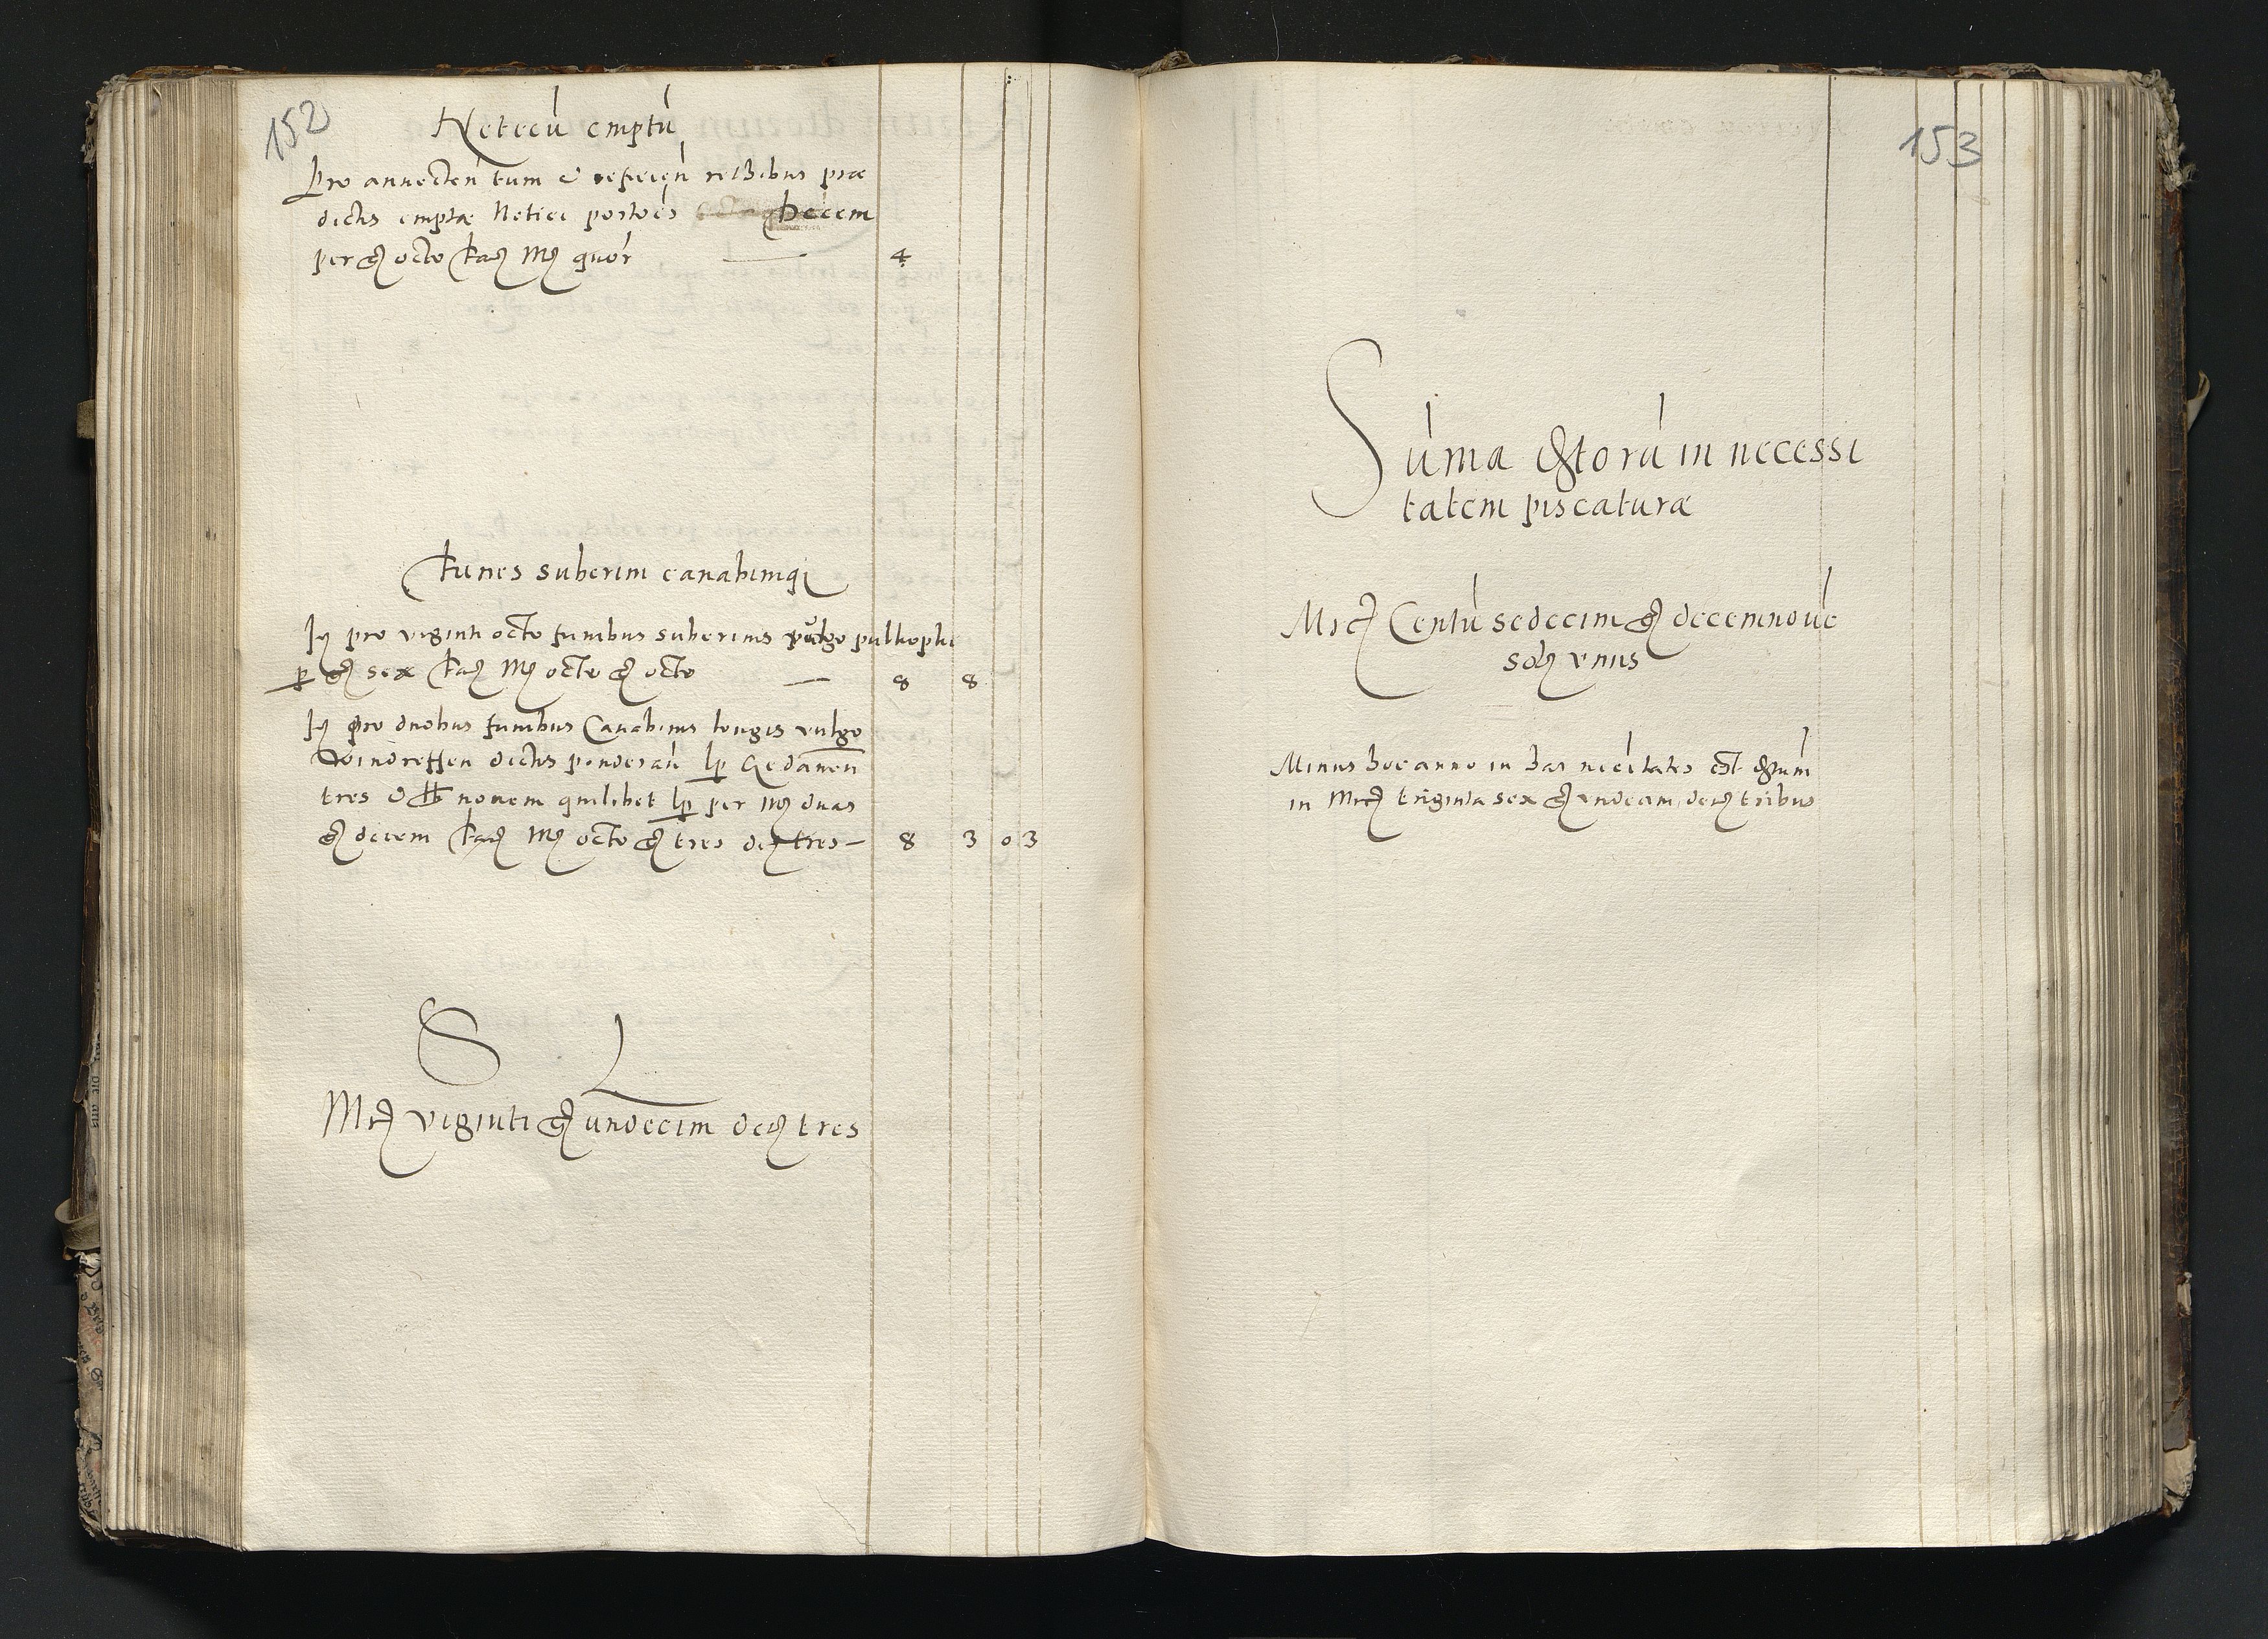 152
Netecú emptú
Pro annecten tum et reficien retibus præ
dictis emptæ Netici portoës decem
per gr octo fac Mr quor — 4
Funes suberini canabiniq
It pro viginti octo funibus suberinis vulgo pulkoplu
p gr sex fac Mr octo gr octo — 8 8
It pro duobus funibus Canabinis longis vulgo
Windreffen dictis ponderan lp Gedanen
tres et lb novem quilibet lp per Mr duas
gr decem fac Mr octo gr tres de tres — 8 3 0 3
S L
Mrc viginti gr undecim den tres
153
Súma extorú in necessi
tatem piscaturæ
Mrc Centú sedecim gr decemnove
sol unius
Minus hoc anno in has necitates est extum
in Mrc triginta sex gr undecim den tribus